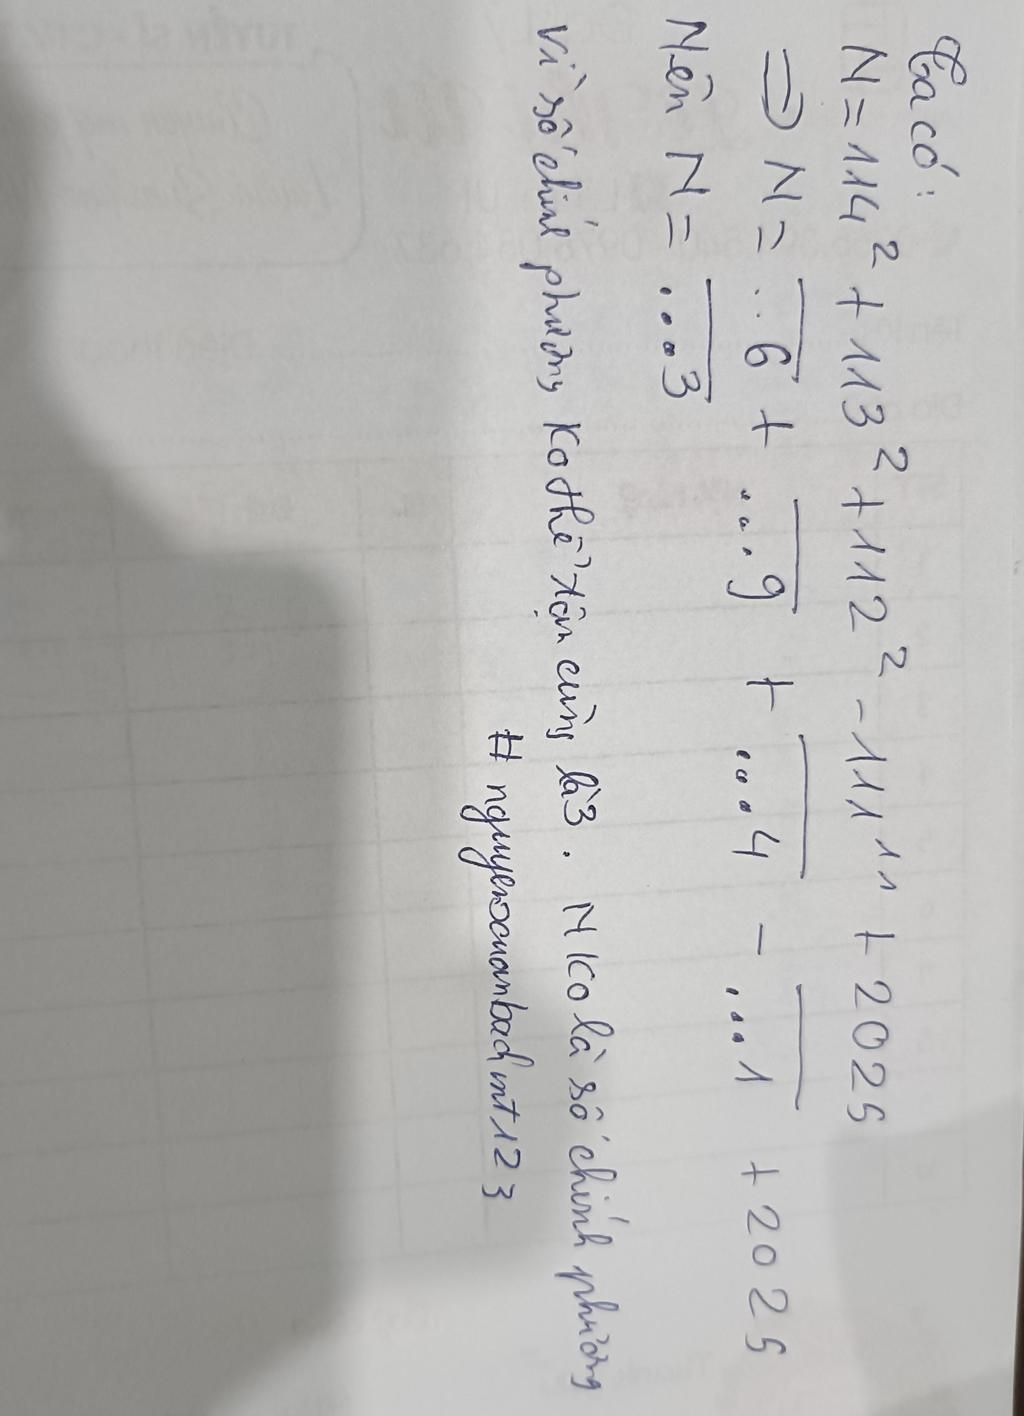 Ta có:
N = 114² + 113² + 112² - 111¹¹ + 2025
⇒ N = ...6 + ...9 + ...4 - ...1 + 2025
Nên N = ...3
Vì số chính phương ko thể tận cùng là 3. N ko là số chính phương